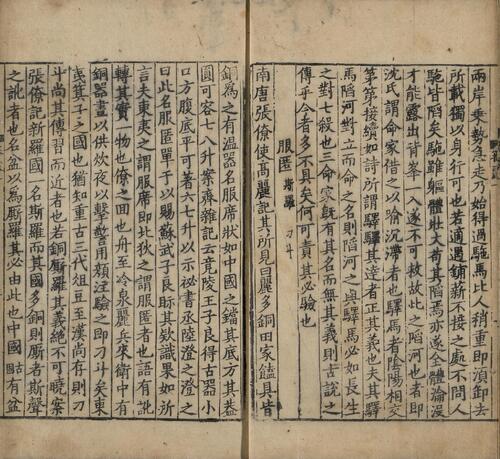 兩岸乘勢急走乃始得過駞馬比人稍重即須卸去
所載獨以身行可也若適遇鋪薪不接之處不問人
駞皆陷矣駞雖軀體壯大苟其陷焉亦遂全體淪沒
才能露出背峯一入遂不可救故此之陷河也者即
沈氏謂命家借之以喻沉滯者也驛馬者陰陽相交
第第接續如詩所謂驛驛其達者正其義也夫其驛
馬陷河之對立而命之名則陷河之與驛馬必如長生
之對七殺也三命家旣有其名而無其義則古說之
傳乎今者多不具矣何可責其必驗也
服匿 斯羅 刁斗
南唐張僚使髙麗記其所見曰麗多銅田家饁具皆
銅為之有溫器名服席狀如中國之鐺其底方其蓋
圓可容七八升案齊雜記云竟陵王子良得古器小
口方腹底平可著六七升以示秘書丞陸澄之澄之
曰此名服匿單于以賜蘇武子良眎其欵識果如所
言夫東夷之謂服席即北狄之謂服匿者也語有訛
轉其實一物也僚之囬也舟至冷泉麗兵來衛中有
銅器晝以供炊夜以擊警用驗之即刁斗矣東
夷箕子之國也猶知重古三代俎豆至漢尚存則刁
斗尚其傳習而近者也若銅厮羅其義絕不可曉案
張僚記新羅國一名斯羅而其國多銅則厮者斯聲
之訛者也名盆以為厮羅其必由此也中國固古有盆